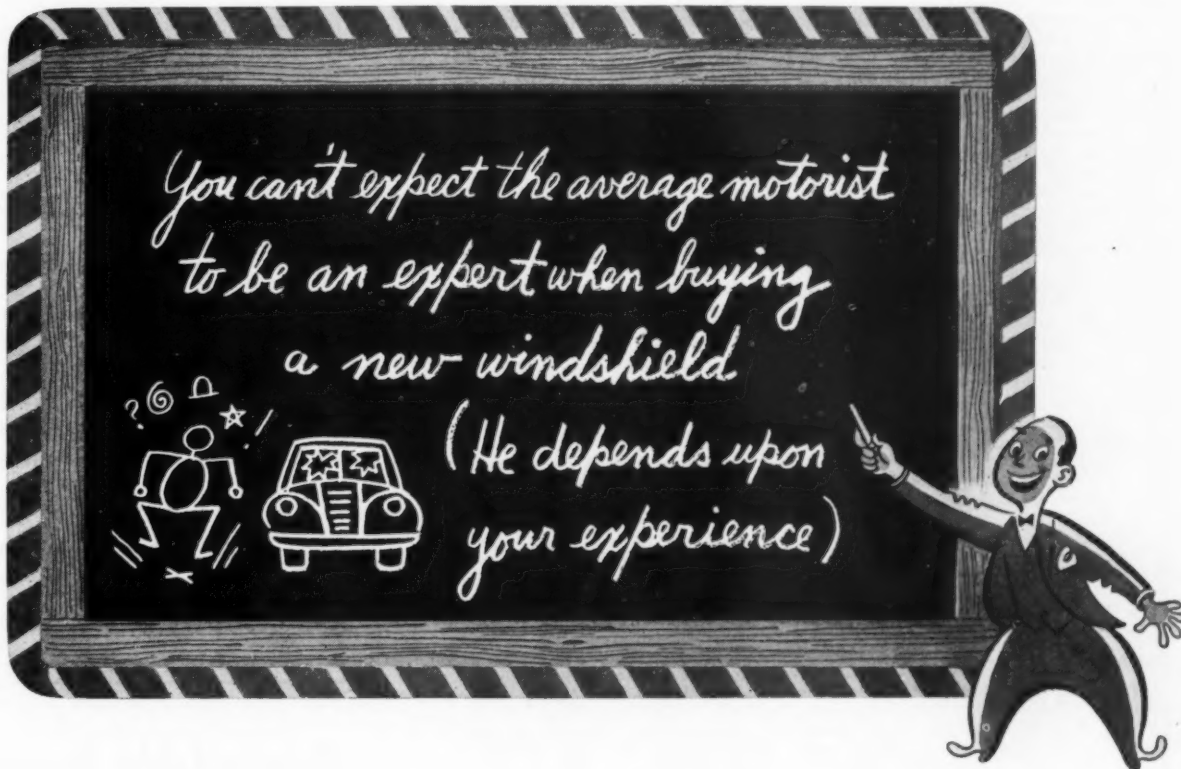 You can't expect the average motorist
to be an expert when buying
a new windshield
(He depends upon
your experience)
? !